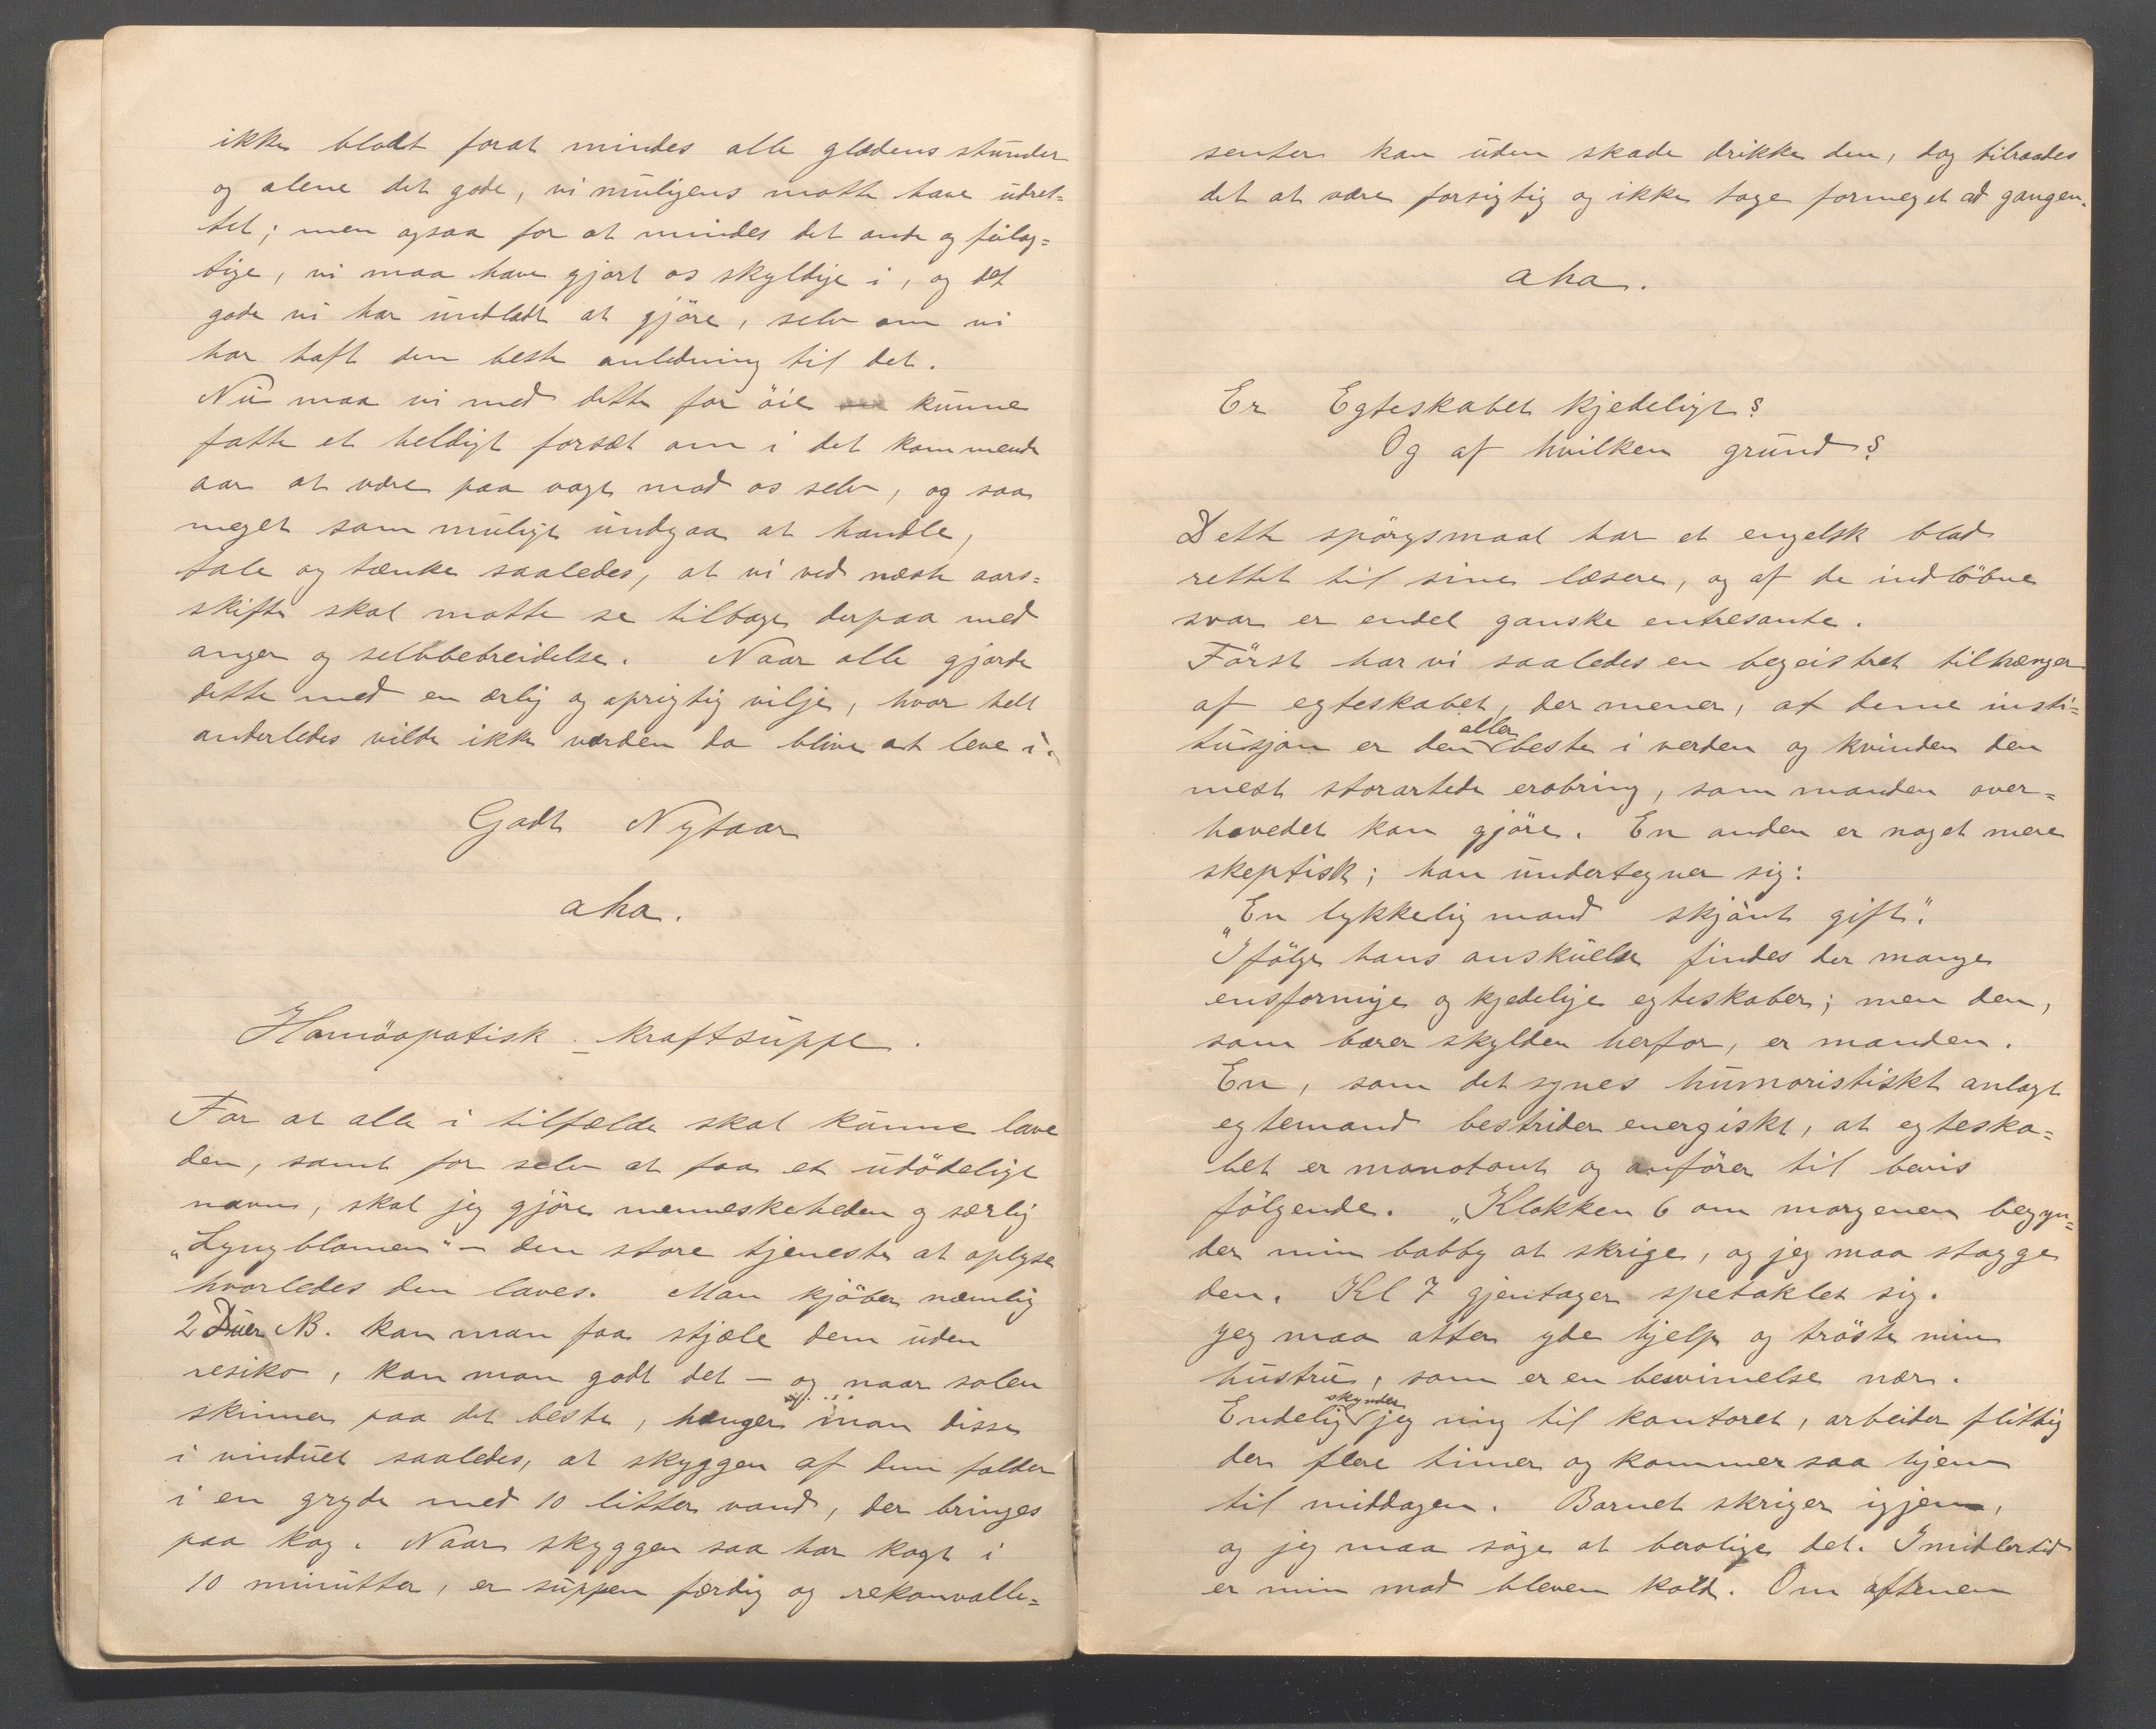 ikke blodt forat mindes alle glædens stunder
og alene det gode, vi muligens motte have udret=
tet; men ogsaa for at mindes det onde og feilag=
tige, vi maa have gjort os skyldige i, og det
gode vi har undladt at gjöre, selv om vi
har haft den beste anledning til det.
Nu maa vi med dette for öie kunne
fatte et heldigt forsæt om i det kommende
aar at være paa vagt mod os selv, og saa
meget som muligt undgaa at handle,
tale og tænke saaledes, at vi ved næste aars=
skifte skal motte se tilbage derpaa med
anger og selvbebreidelse. Naar alle gjorde
dette med en ærlig og oprigtig vilje, hvor helt
anderledes vilde ikke værden da blive at leve i.
Godt Nytaar
aha.
Homöopatisk - kraftsuppe.
For at alle i tilfælde skal kunne lave
den, samt for selv at faa et udödeligt
navn, skal jeg gjöre menneskeheden og særlig
„Lyngblomen" - den store tjeneste at oplyse
hvorledes den laves. Man kjöber næmlig
2 Duer NB. kan man faa stjæle dem uden
resiko, kan man godt det - og naar solen
skinner paa det beste, hænger man disse
i vinduet saaledes, at skyggen af dem falder
i en gryde med 10 litter vand, der bringes
paa kog. Naar skyggen saa har kogt i
10 minutter, er suppen færdig og rekonvalle=
senter kan uden skade drikke den, dog tilraades
det at være forsigtig og ikke tage formeget ad gangen.
aha.
Er Egteskabet kjedeligt?
Og af hvilken grund?
Dette spörgsmaal har et engelsk blad
rettet til sine læsere, og af de indlöbne
svar er endel ganske entresante.
Först har vi saaledes en begeistret tilhænger
af egteskabet, der mener, at denne insti=
tusjon er den aller beste i verden og kvinden den
mest storartede erobring, som manden over=
hovedet kan gjöre. En anden er noget mere
skeptisk; han undertegner sig:
„En lykkelig mand skjönt gift".
Ifölge hans anskuelse findes der mange
ensformige og kjedelige egteskaber; men den,
som bærer skylden herfor, er manden.
En, som det synes humoristiskt anlagt
egtemand bestrider energiskt, at egteska=
bet er monotont og anförer til bevis
fölgende. „Klokken 6 om morgenen begyn=
der min babby at skrige, og jeg maa stagge
den. Kl 7 gjentager spetaklet sig.
jeg maa atter yde hjelp og tröste min
hustru, som er en besvimelse nær.
Endelig skynder jeg mig til kontoret, arbeider flittig
der flere timer og kommer saa hjem
til middagen. Barnet skriger igjen,
og jeg maa söge at berolige det. Imidlertid
er min mad bleven kold. Om aftenen